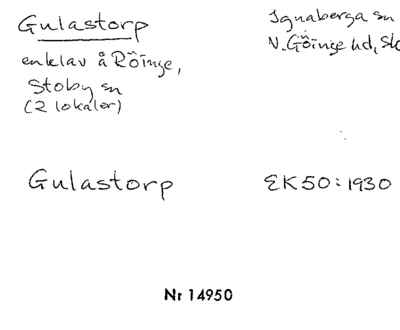 Gulastorp
Ignaberga sn
enklav å Röinge,
N. Göinge hd,
Stoby sn
(2 lokaler)
Gulastorp
EK50:1930
Nr 14950